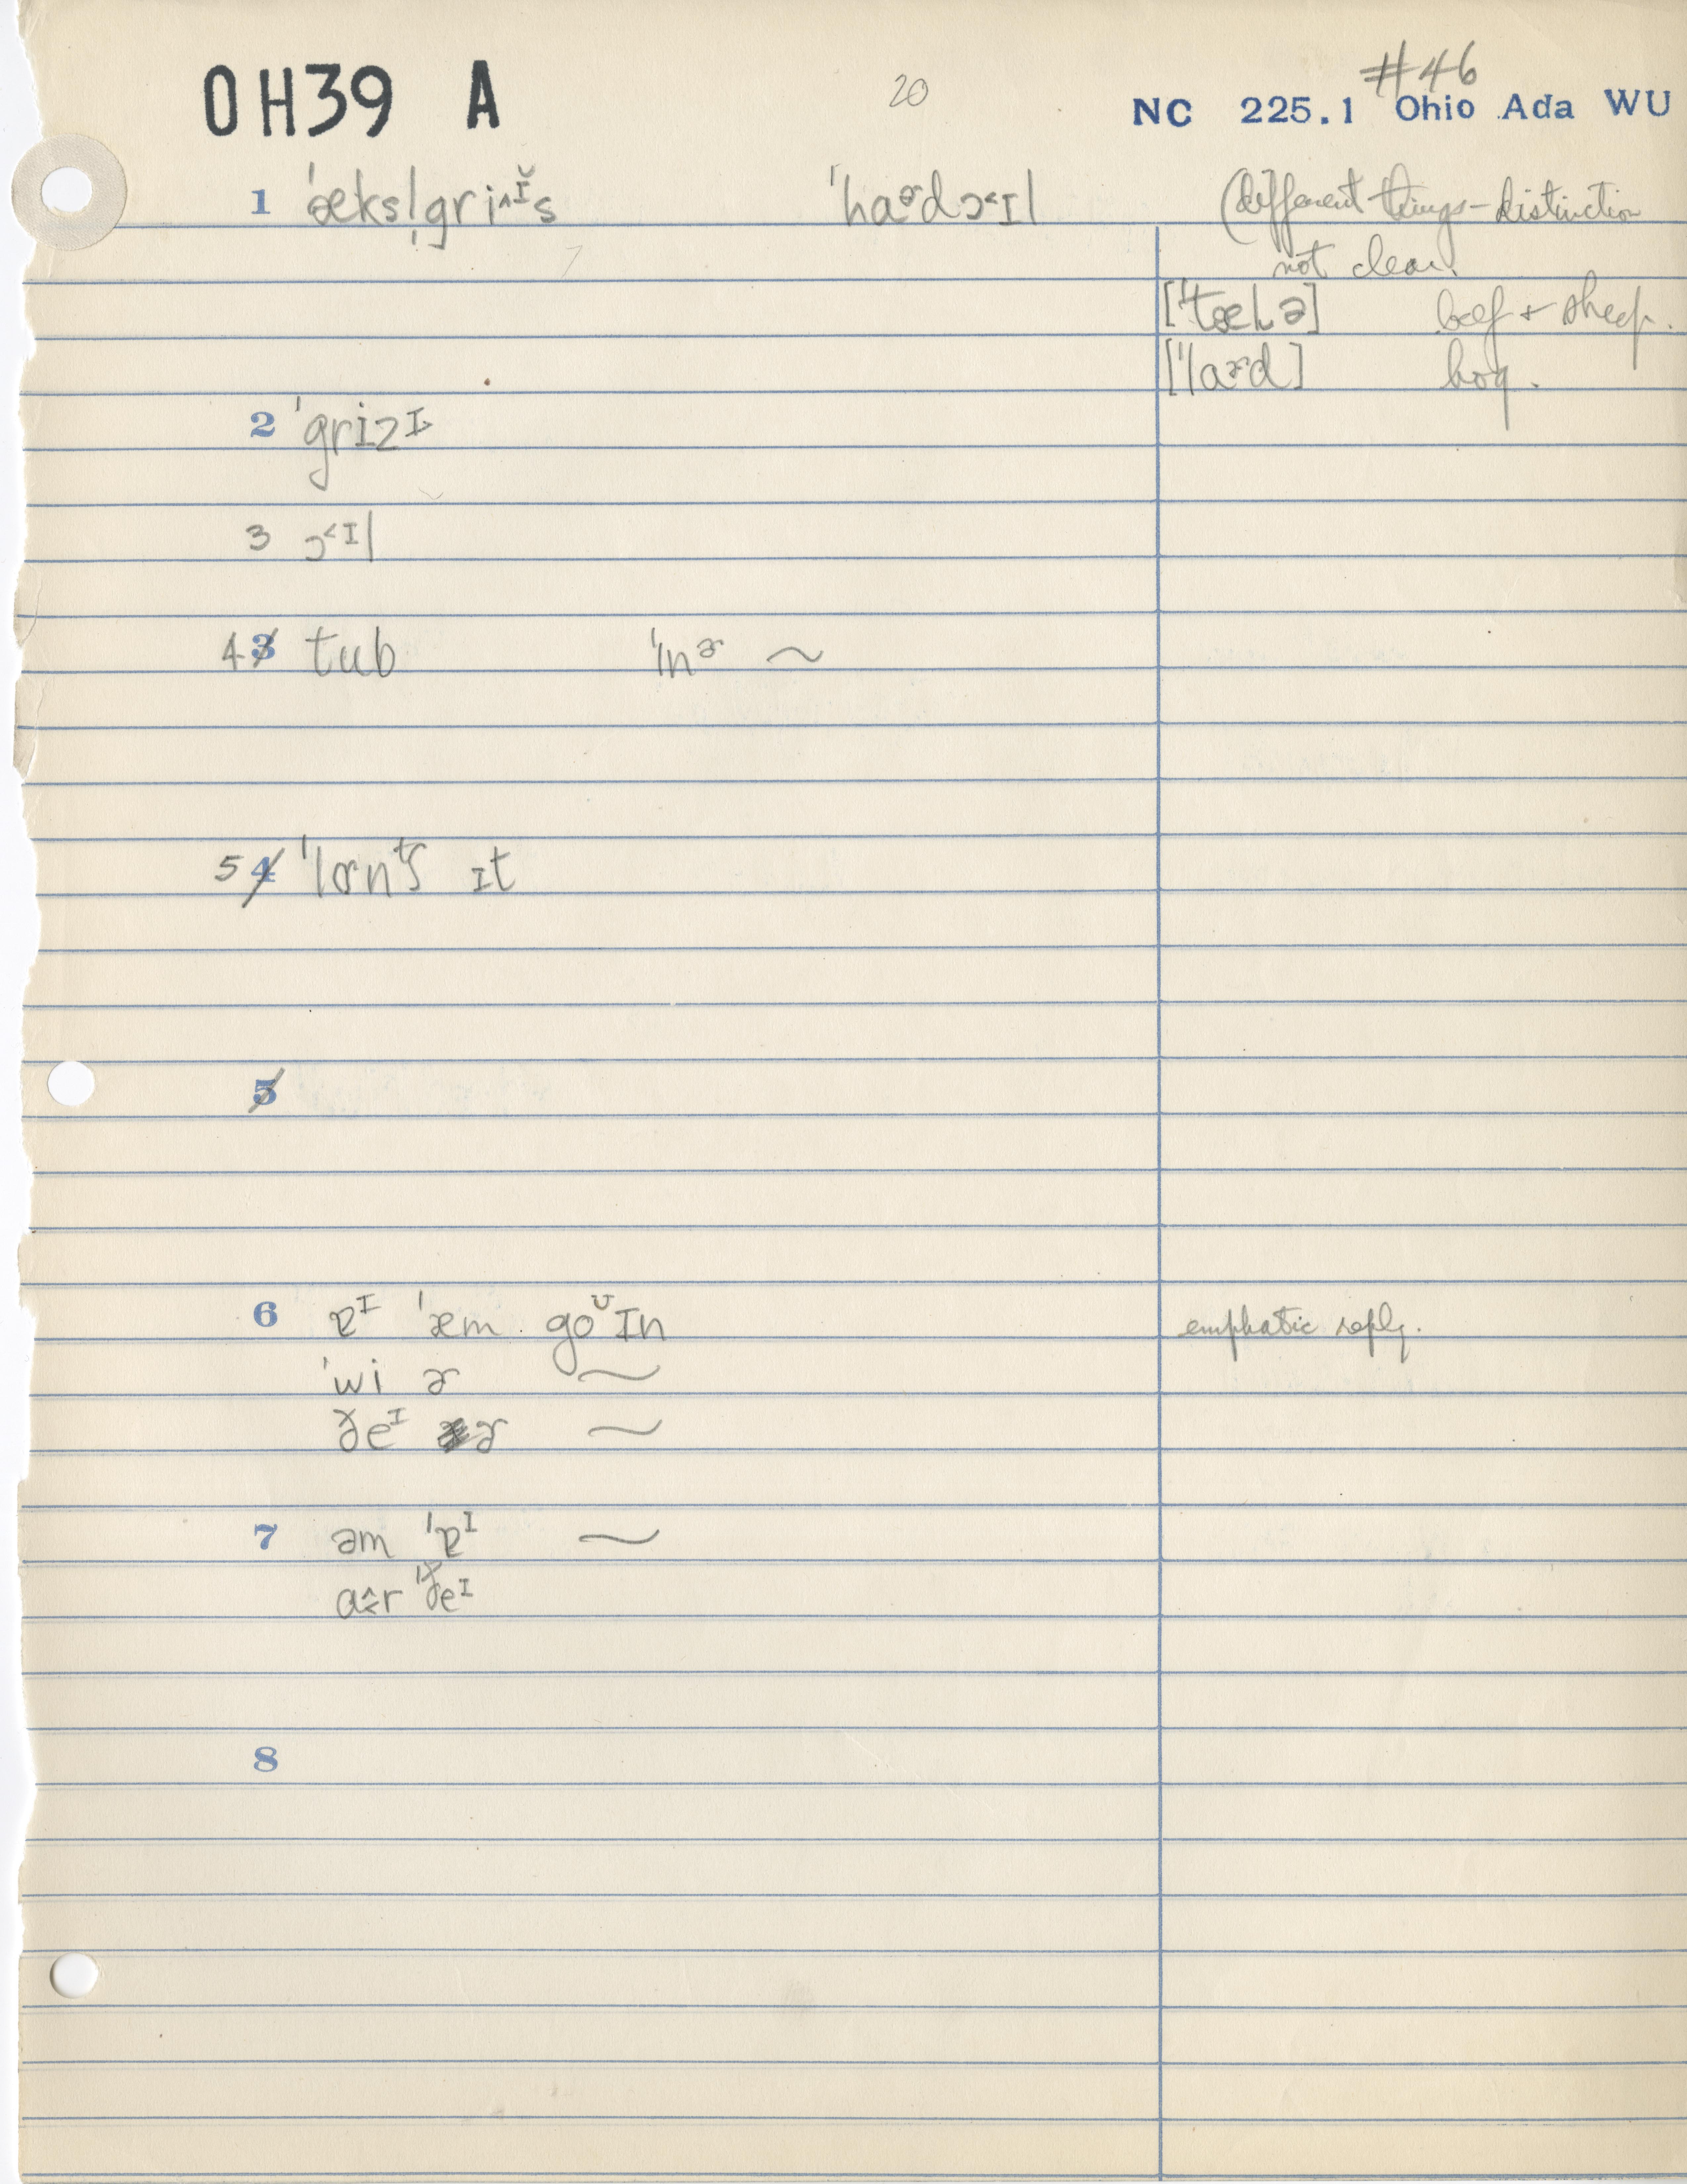 OH39 A 20 #46
NC 225.1 Ohio Ada WU
1 ˈæksl̩gri˄ɪ̆s ˈhaɚdɔ˂ɪl (different things - distinction
not clear.
[ˈtælə] beef + sheep.
[ˈlaɚd] hog.
2 ˈgrizɪ˃
3 ɔ˂ɪl
4 3 tub ˈɪnɚ ~
5 4 ˈlɔntʃ ɪt
5
6 ɐᴵ ˈæm goᶷɪn emphatic reply.
ˈwi ɚ ~
ðeᴵ ɚ ~
7 əm ˈɐᴵ ~
ɑ˄r ˈðeᴵ
8